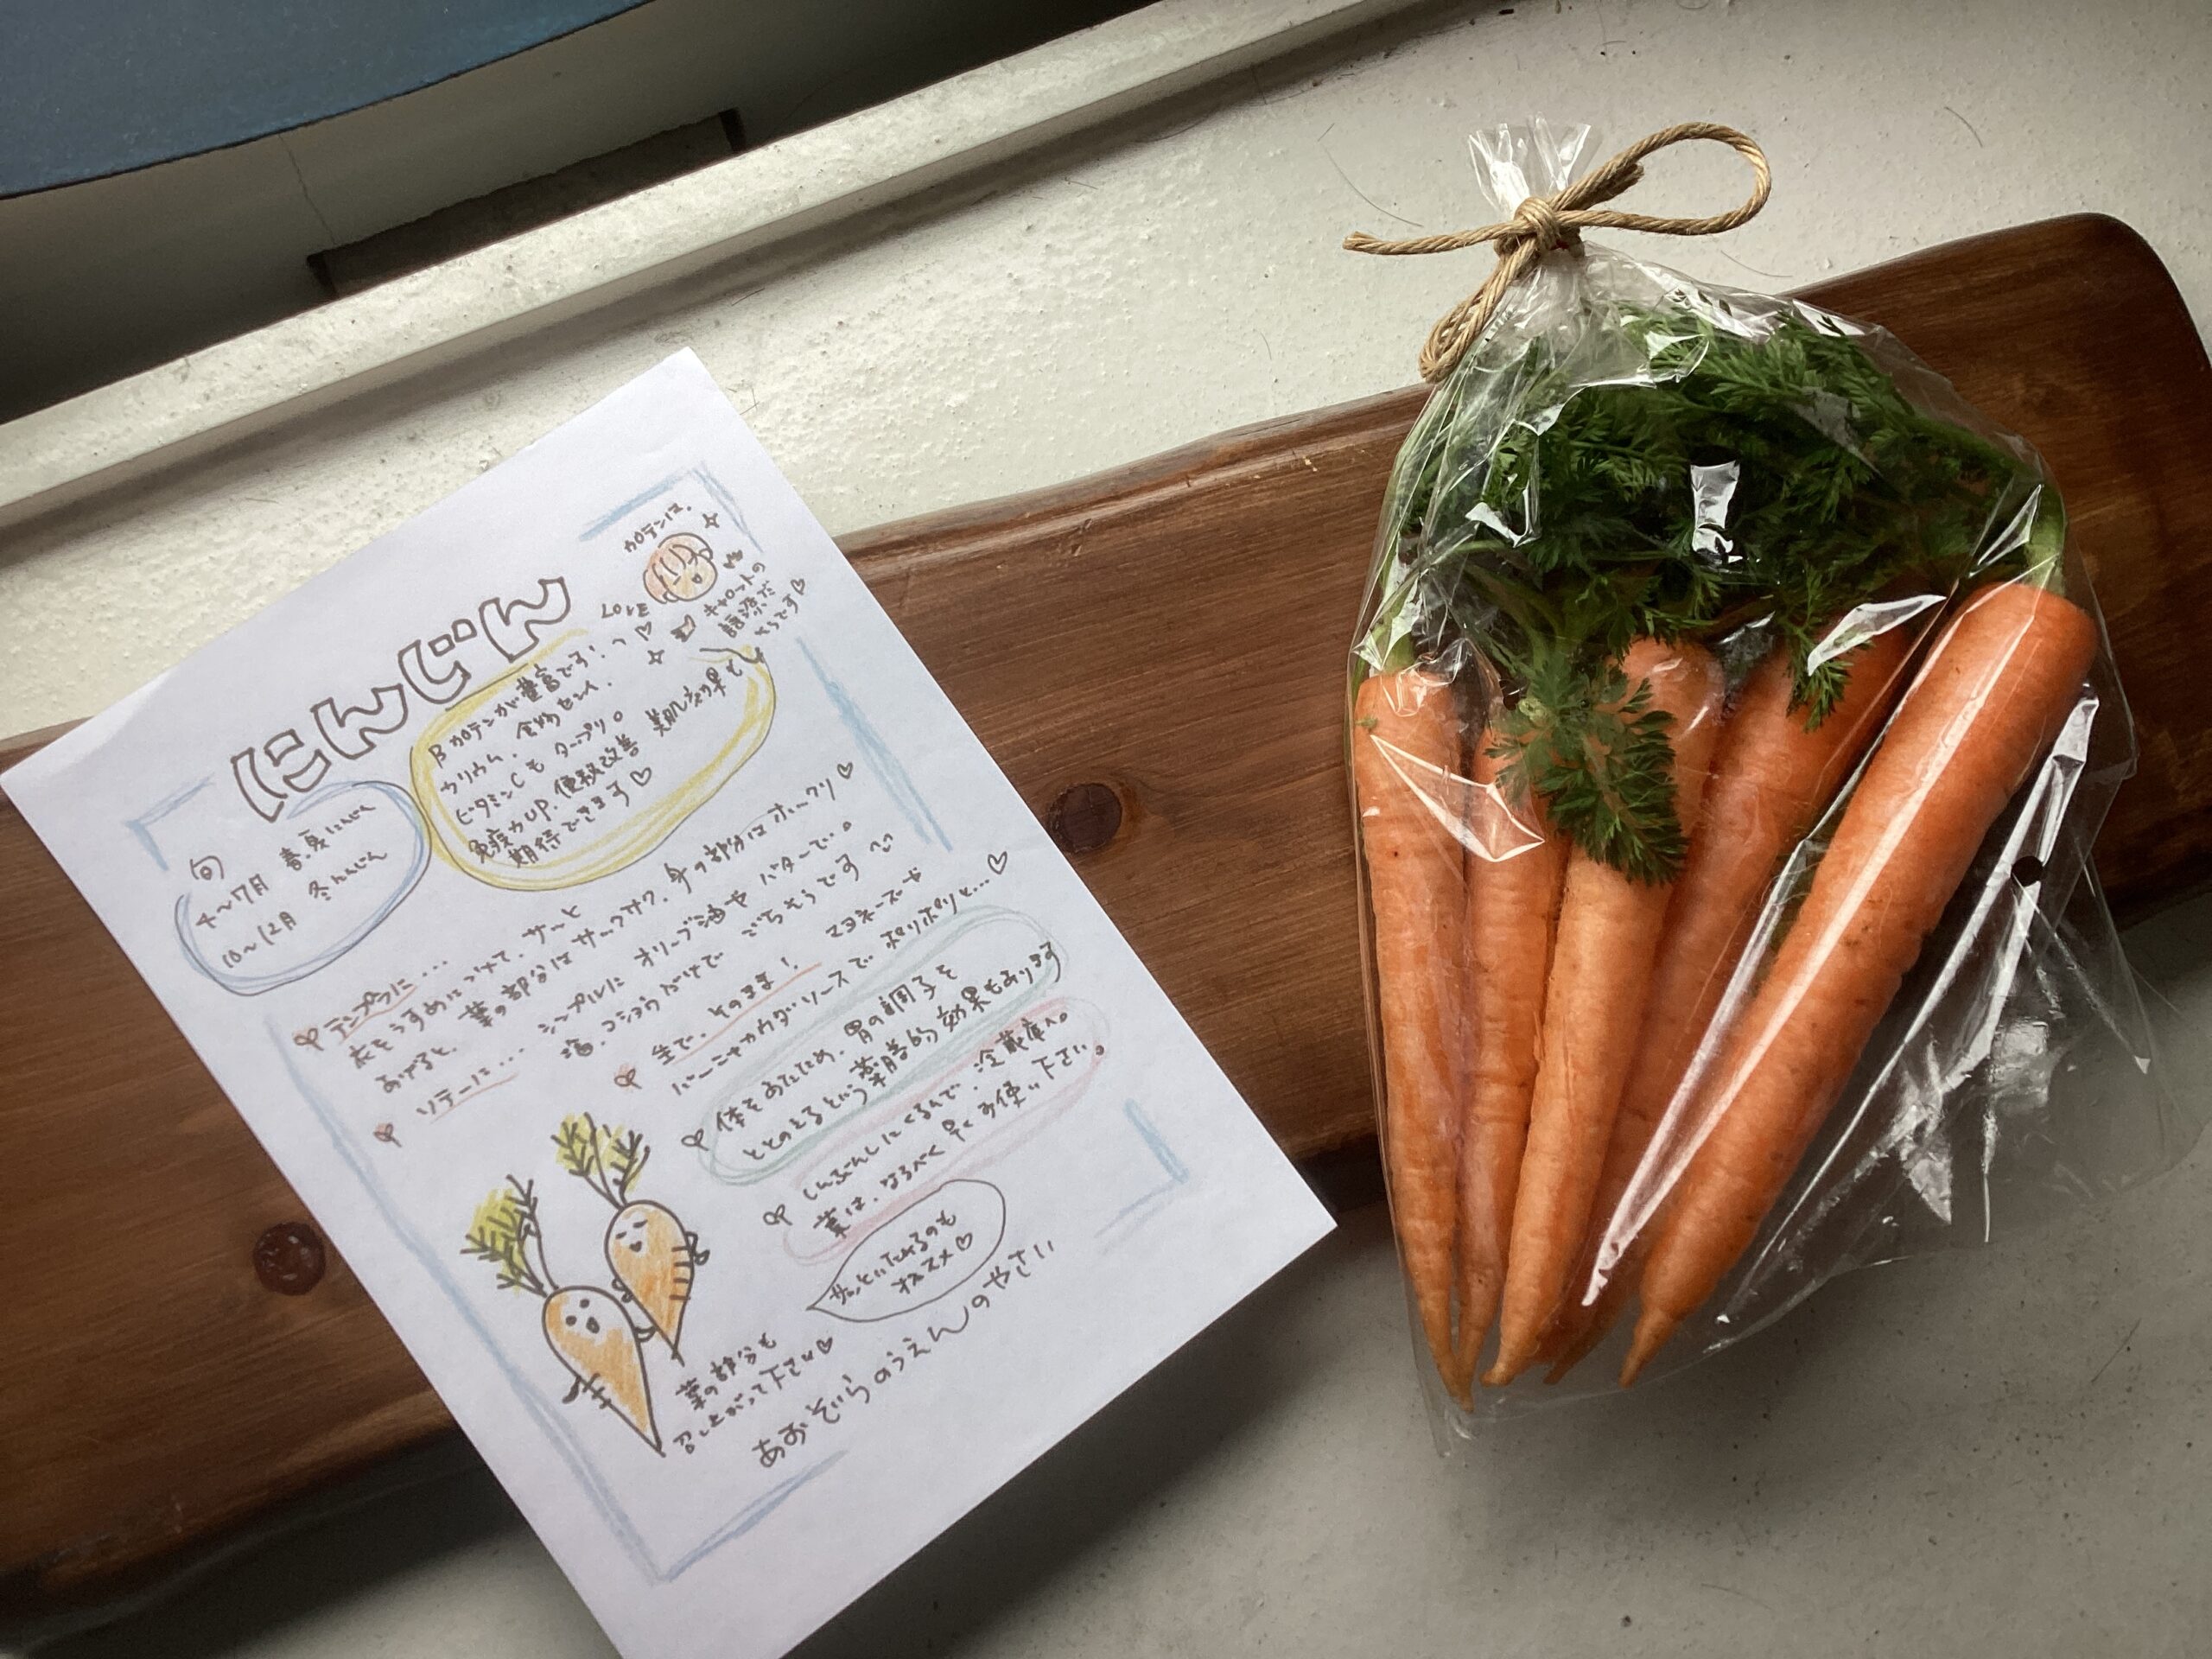 にんじん
カロテンは、
LOVE
キャロットの
語源だ
そうです♡
βカロテンが豊富です！
カリウム、食物センイ、
ビタミンCも タップリ。
免疫力UP、便秘改善 美肌効果も
期待できます♡
旬
4〜7月 春夏にんじん
10〜12月 冬にんじん
テンプラに…
衣をうすめにつけて、サッと
あげると、葉の部分はサックサク、身の部分はホックリ♡
ソテーに… シンプルに オリーブ油や バターで。
塩、コショウだけで ごちそうです
生で、そのまま！ マヨネーズや
バーニャカウダソースで ポリポリと…♡
体をあたため、胃の調子を
ととのえるという薬膳的効果もあります
しんぶんしにくるんで、冷蔵庫へ。
葉は、なるべく早くお使い下さい。
サッといためるのも
オススメ♡
葉の部分も
召し上がって下さい♡
あおぞらのうえんのやさい